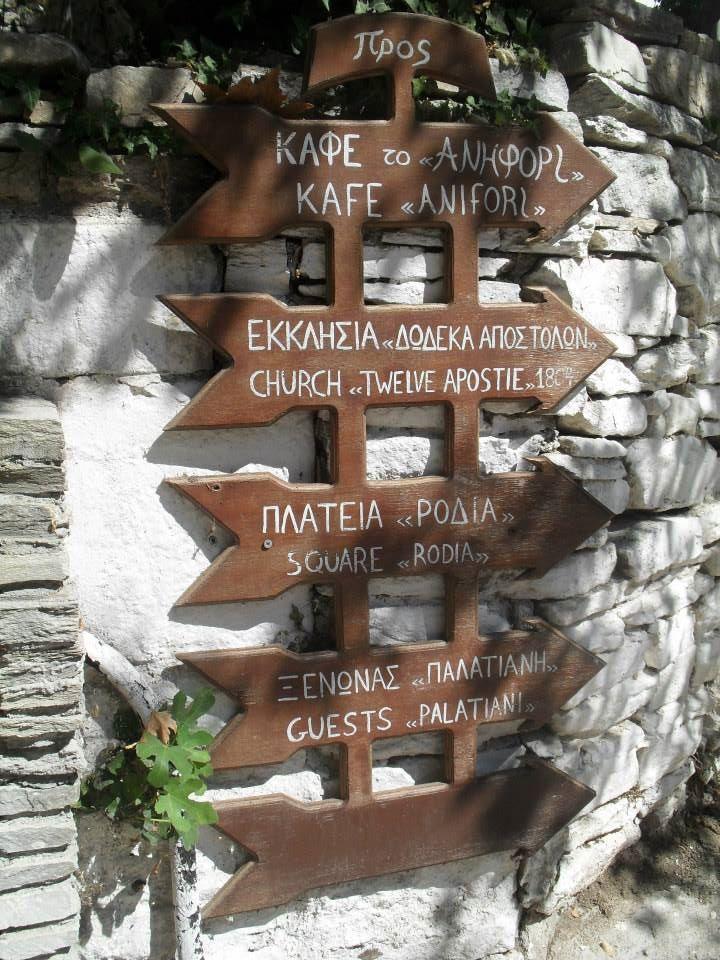 Προς
ΚΑΦΕ το «ΑΝΗΦΟΡΙ»
KAFE «ANIFORI»
ΕΚΚΛΗΣΙΑ «ΔΩΔΕΚΑ ΑΠΟΣΤΟΛΩΝ»
CHURCH «TWELVE APOSTIE»
ΠΛΑΤΕΙΑ «ΡΟΔΙΑ»
SQUARE «RODIA»
ΞΕΝΩΝΑΣ «ΠΑΛΑΤΙΑΝΗ»
GUESTS «PALATIANI»